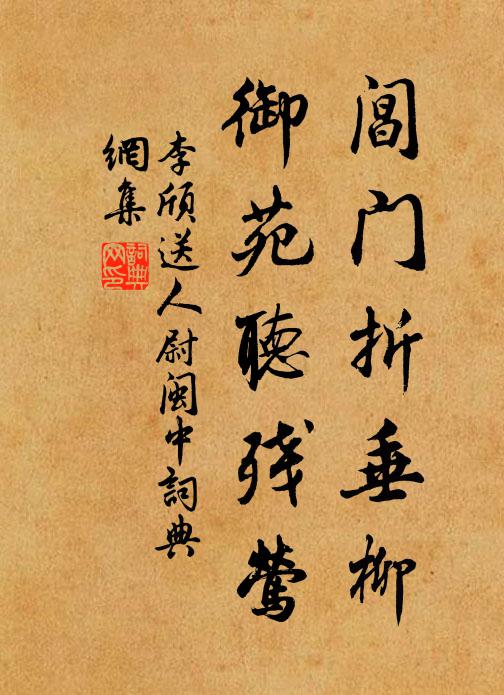 阊门折垂柳
御苑聽残莺
李頎送人尉闽中詞典
網集
詞典
网印